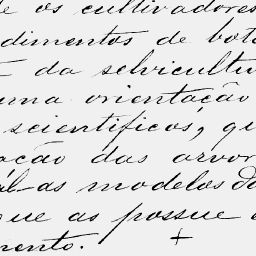 e os cultivadores
dimentos de bot
da selvicultu
uma orientação
scientificos, qu
ação das arvor
al-as modelos do
que as possue
mento. +